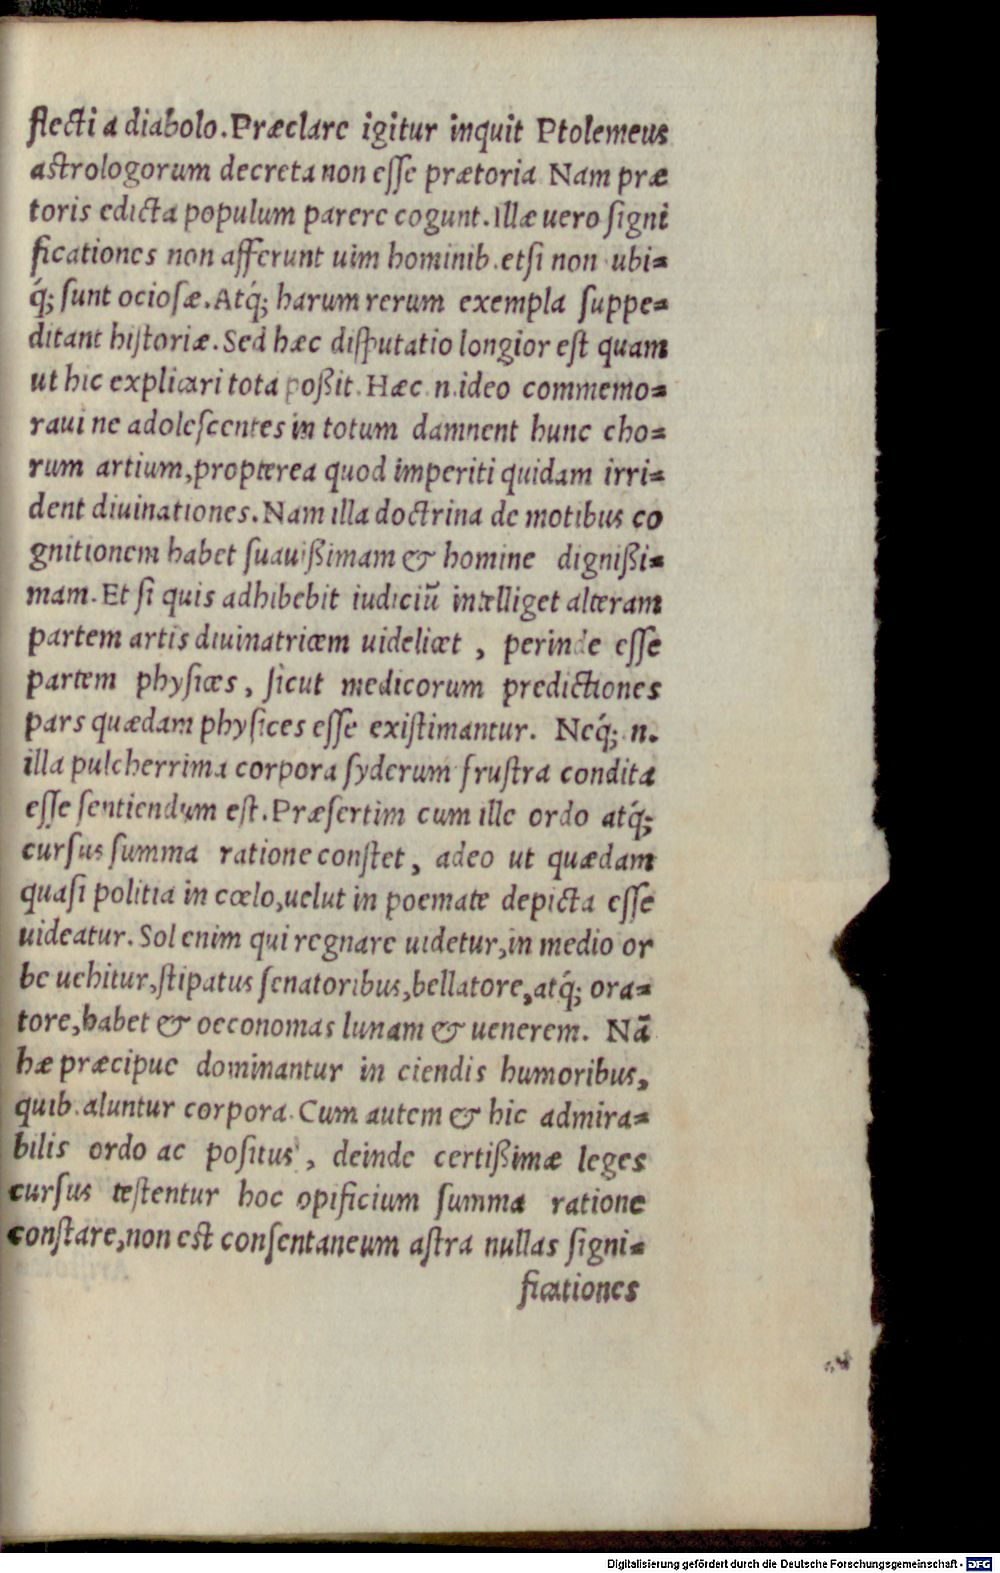 flecti a diabolo. Præclare igitur inquit Ptolemeus
astrologorum decreta non esse prætoria Nam præ
toris edicta populum parere cogunt. Illæ uero signi
ficationes non afferunt uim hominib. etsi non ubi=
q́; sunt ociosæ. Atq́; harum rerum exempla suppe=
ditant historiæ. Sed hæc disputatio longior est quam
ut hic explicari tota poßit. Hæc .n. ideo commemo=
raui ne adolescentes in totum damnent hunc cho=
rum artium, propterea quod imperiti quidam irri=
dent diuinationes. Nam illa doctrina de motibus co
gnitionem habet suauißimam & homine dignißi=
mam. Et si quis adhibebit iudiciũ intelliget alteram
partem artis diuinatricem uidelicet , perinde esse
partem physices, sicut medicorum predictiones
pars quædam physices esse existimantur. Neq́; n.
illa pulcherrima corpora syderum frustra condita
esse sentiendum est. Præsertim cum ille ordo atq́;
cursus summa ratione constet, adeo ut quædam
quasi politia in cœlo, uelut in poemate depicta esse
uideatur. Sol enim qui regnare uidetur, in medio or
be uehitur, stipatus senatoribus, bellatore, atq́; ora=
tore, habet & oeconomas lunam & uenerem. Nã
hæ præcipue dominantur in ciendis humoribus,
quib. aluntur corpora. Cum autem & hic admira=
bilis ordo ac positus , deinde certißimæ leges
cursus testentur hoc opificium summa ratione
constare, non est consentaneum astra nullas signi=
ficationes
Digitalisierung gefördert durch die Deutsche Forschungsgemeinschaft - DFG